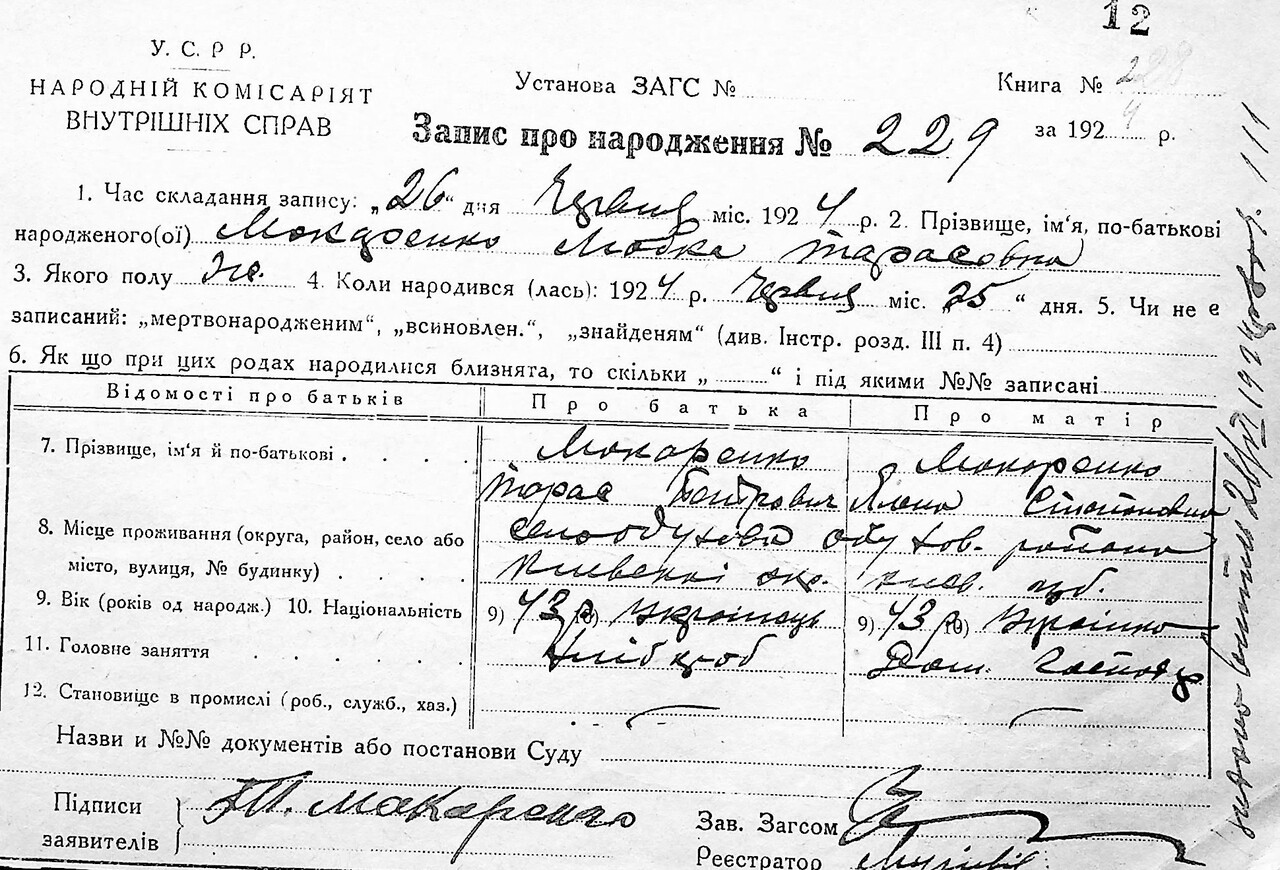 12
У. С. Р Р.
НАРОДНІЙ КОМІСАРІЯТ
ВНУТРІШНІХ СПРАВ
Установа ЗАГС №
Книга № 228
за 1924 р.
Запис про народження № 229
1. Час складання запису: „26“ дня Червня міс. 1924 р. 2. Прізвище, ім‘я, по-батькові
народженого(ої) Макаренко Любка Тарасовна
3. Якого полу Жо. 4. Коли народився (лась): 1924 р. Червня міс. „25“ дня. 5. Чи не є
записаний: „мертвонародженим“, „всиновлен.“, „знайденям“ (див. Інстр. розд. III п. 4)
6. Як що при цих родах народилися близнята, то скільки „ “ і під якими №№ записані
Відомості про батьків Про батька Про матір
7. Прізвище, ім‘я й по-батькові . . . . Макаренко Макаренко
Тарас Петрович Степановна
8. Місце проживання (округа, район, село або
місто, вулиця, № будинку) . . . . району
9. Вік (років од народж.) 10. Національність 9) 43 р. 10) Українець 9) 43 р. 10) Українка
11. Головне заняття . . . . . Хлібороб Дом. Господ
12. Становище в промислі (роб., служб., хаз.)
Назви и №№ документів або постанови Суду
Підписи
заявителів
Т. Макаренко
Зав. Загсом
Реєстратор